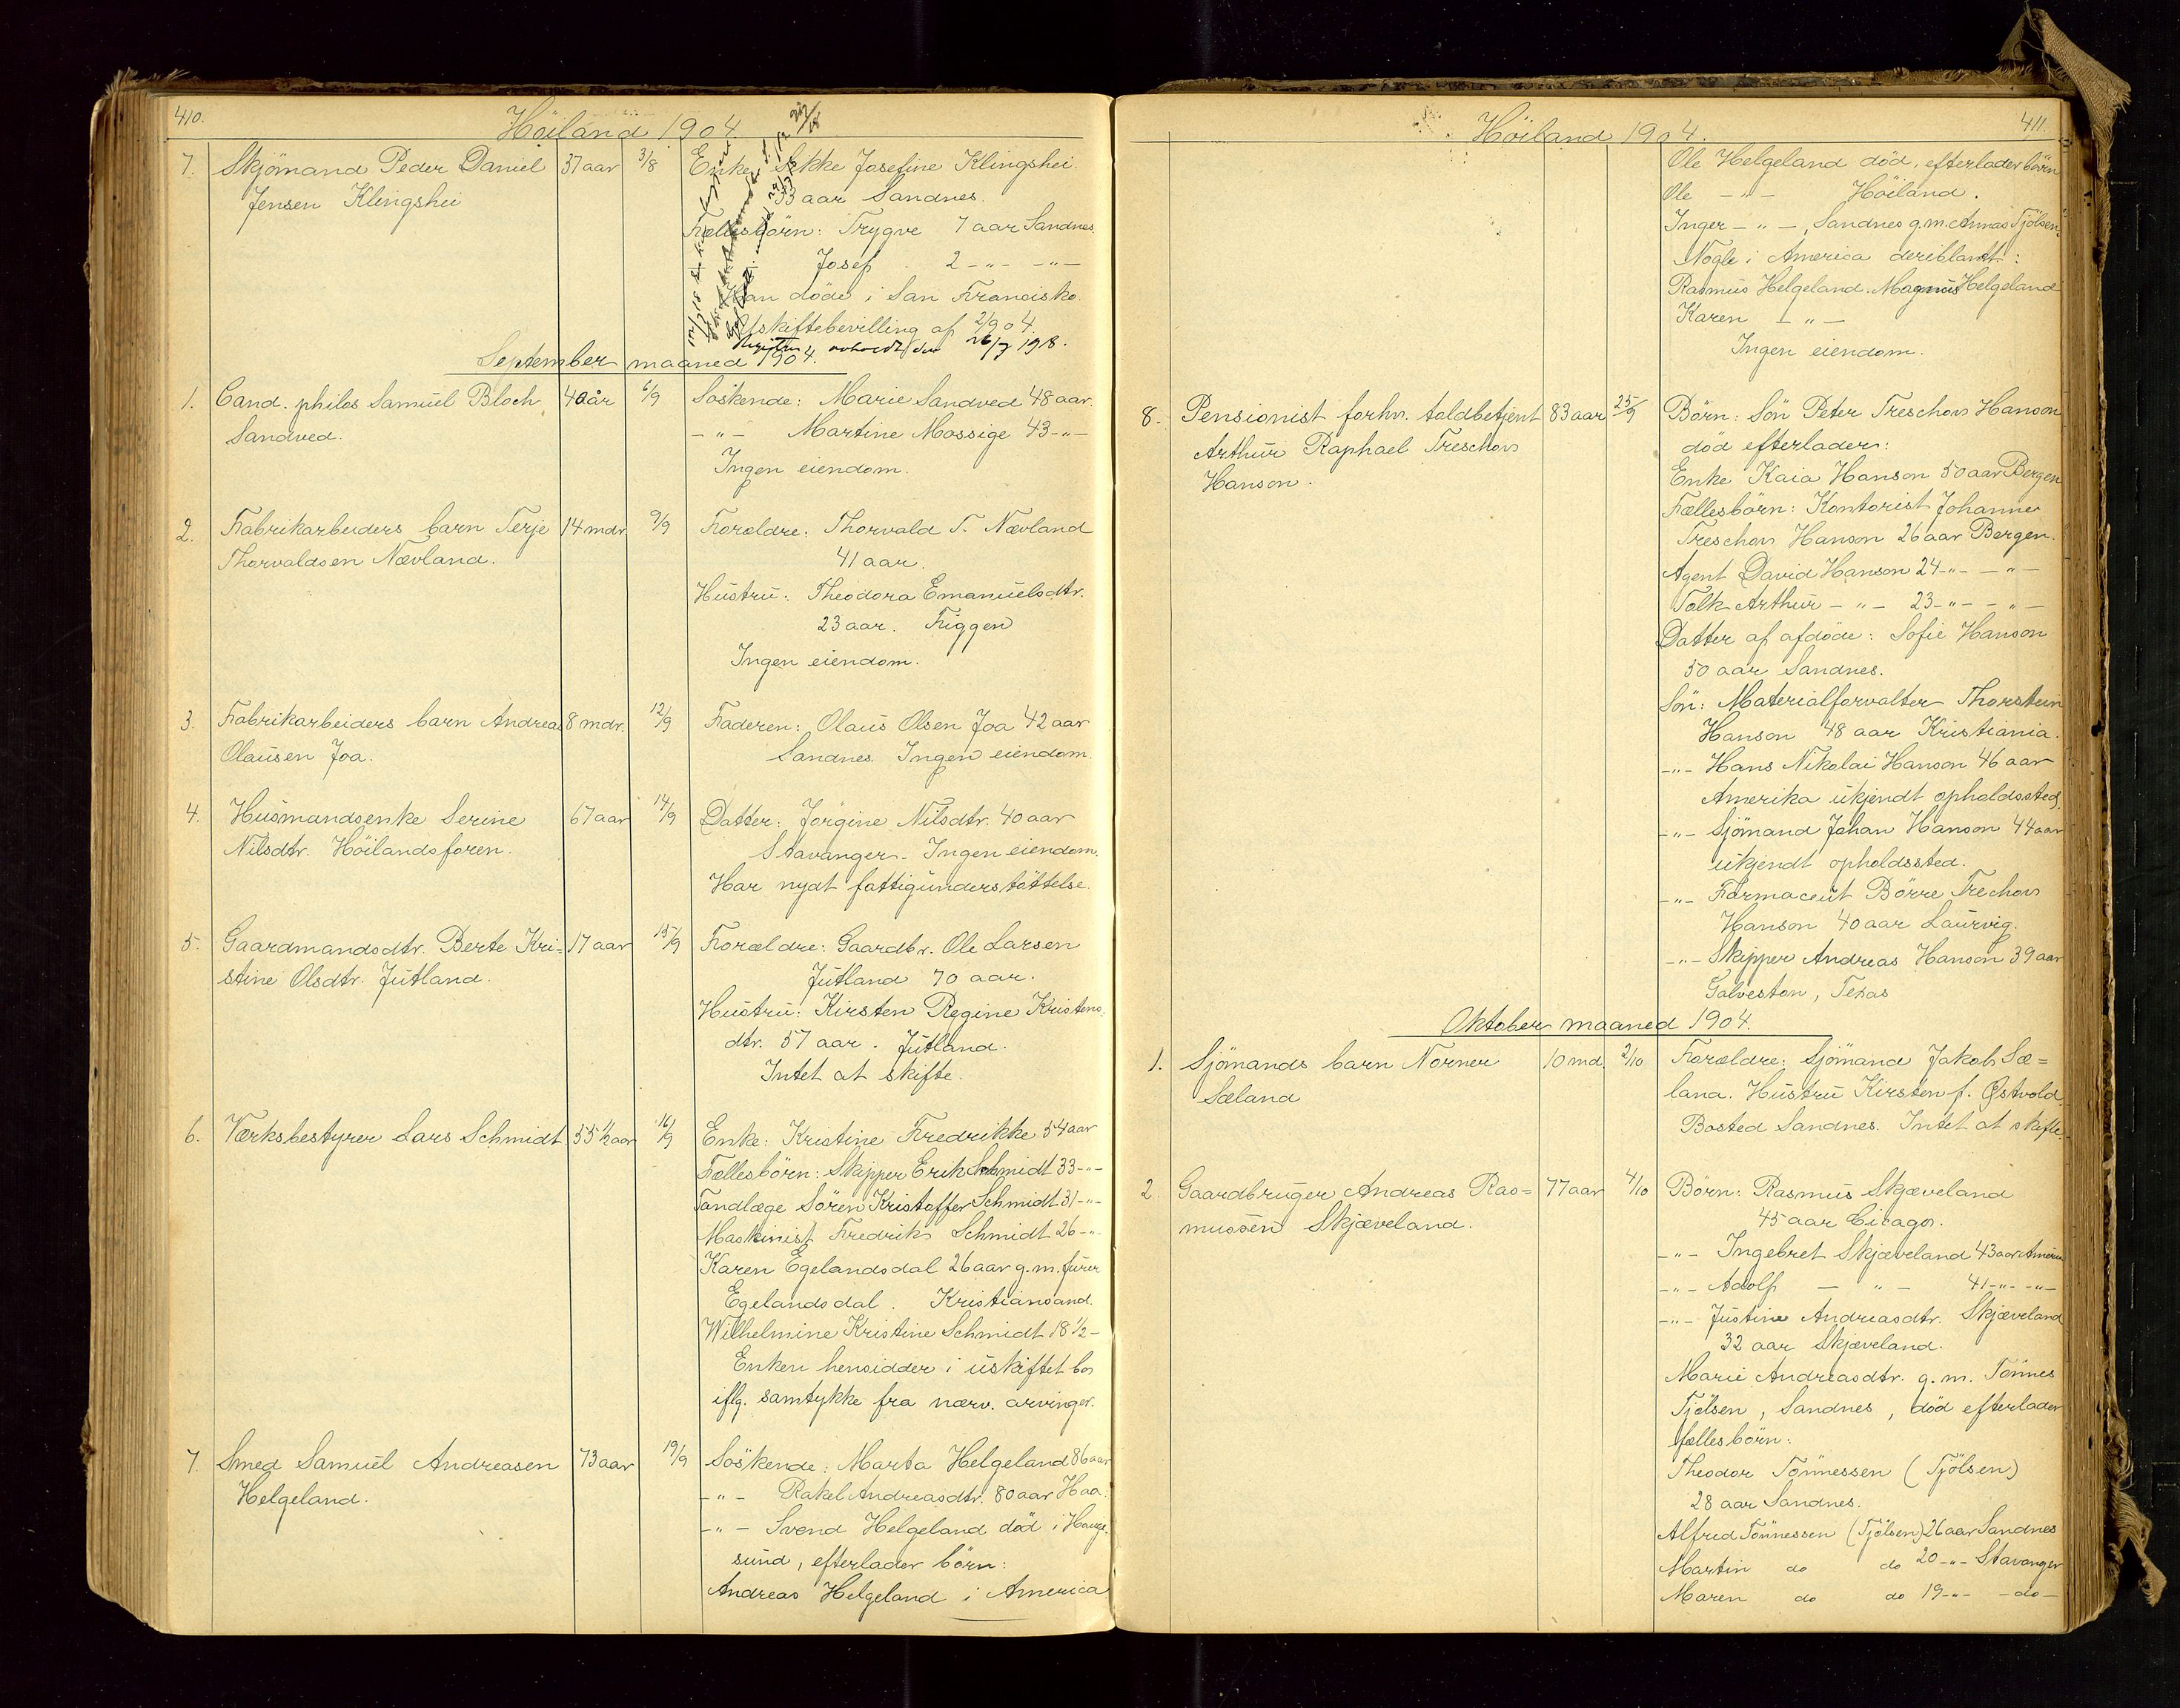 410.
Höiland 1904.
7. Skjömand Peder Daniel 37 aar 3/8 Enke Sekke Josefine Klingshei.
Jensen Klingshei 33 aar Sandnes.
Fællesbörn: Trygve 7 aar Sandnes.
Josef 2 -"- -"-
Han döde i San Francisko.
Uskiftebevilling af 2/9 04.
avholdt den 26/7 1918.
September maaned 1904.
1. Cand. philos Samuel Bloch 40 år 6/9 Söskende: Marie Sandved 48 aar.
Sandved. -"- Martine Mossige 43 -"-
Ingen eiendom.
2. Fabrikarbeiders barn Terje 14 mdr. 9/9 Forældre: Thorvald T. Nævland
Thorvaldsen Nævland. 41 aar.
Hustru: Theodora Emanuelsdtr.
23 aar. Figgen
Ingen eiendom.
3. Fabrikarbeiders barn Andreas 8 mdr. 12/9 Faderen: Olaus Olsen Joa 42 aar
Olausen Joa. Sandnes. Ingen eiendom.
4. Husmandsenke Serine 67 aar 14/9 Datter: Jörgine Nilsdtr. 40 aar
Nilsdtr. Höilandsforen. Stavanger. Ingen eiendom.
Har nydt fattigunderstöttelse.
5. Gaardmandsdtr. Berte Kri= 17 aar 15/9 Forældre: Gaardbr. Ole Larsen
stine Olsdtr. Jutland. Jutland 70 aar.
Hustru: Kirsten Regine Kristens=
dtr. 57 aar. Jutland.
Intet at skifte.
6. Værksbestyrer Lars Schmidt 55 1/2 aar 16/9 Enke: Kristine Fredrikke 54 aar
Fællesbörn: Skipper Erik Schmidt 33 -"-
Tandlæge Sören Kristoffer Schmidt 31 -"-
Maskinist Fredrik Schmidt 26 -"-
Karen Egelandsdal 26 aar g.m. furer
Egelandsdal. Kristiansand.
Wilhelmine Kristine Schmidt 18 1/2 -
Enken hensidder i uskiftet bo
iflg. samtykke fra nærv. arvinger.
7. Smed Samuel Andreasen 73 aar 19/9 Söskende: Marta Helgeland 86 aar
Helgeland. -"- Rakel Andreasdtr. 80 aar Haa.
-"- Svend Helgeland död i Hauge-
sund, efterlader börn:
Andreas Helgeland i America
Höiland 1904.
411.
Ole Helgeland död, efterlader börn
Ole -"- Höiland.
Inger -"-, Sandnes g.m. Annas Tjölsen.
Nogle i America deriblandt:
Rasmus Helgeland. Magnus Helgeland
Karen -"-
Ingen eiendom.
8. Pensionist forhv. toldbetjent 83 aar 25/9 Börn: Sön Peter Treschow Hanson
Arthur Raphael Treschow död efterlader:
Hanson. Enke Kaia Hanson 50 aar Bergen
Fællesbörn: Kontorist Johanne
Treschow Hanson 26 aar Bergen.
Agent David Hanson 24 -"- -"-
Tolk Arthur -"- 23 -"- -"-
Datter af afdöde: Sofie Hanson
50 aar Sandnes.
Sön: Materialforvalter Thorstein
Hanson 48 aar Kristiania.
-"- Hans Nikolai Hanson 46 aar
Amerika ukjendt opholdssted.
-"- Sjömand Johan Hanson 44 aar
ukjendt opholdssted.
-"- Farmaceut Börre Trechow
Hanson 40 aar Laurvig.
-"- Skipper Andreas Hanson 39 aar
Galveston, Texas
Oktober maaned 1904.
1. Sjömands barn Norner 10 md. 2/10 Forældre: Sjömand Jakob Sæ=
Sæland land. Hustru Kirsten f. Østvold.
Bosted Sandnes. Intet at skifte.
2. Gaardbruger Andreas Ras= 77 aar 4/10 Börn: Rasmus Skjæveland
mussen Skjæveland. 45 aar Cicago.
-"- Ingebret Skjæveland 43 aar Amerika
-"- Adolf -"- 41 -"- -"-
-"- Justine Andreasdtr. Skjæveland
32 aar Skjæveland.
Marie Andreasdtr. g.m. Tönnes
Tjölsen, Sandnes, död efterlader
fællesbörn:
Theodor Tönnessen (Tjölsen)
28 aar Sandnes.
Alfred Tönnessen (Tjölsen) 26 aar Sandnes
Martin do do 20 -"- Stavanger
Maren do do 19 -"- -do-